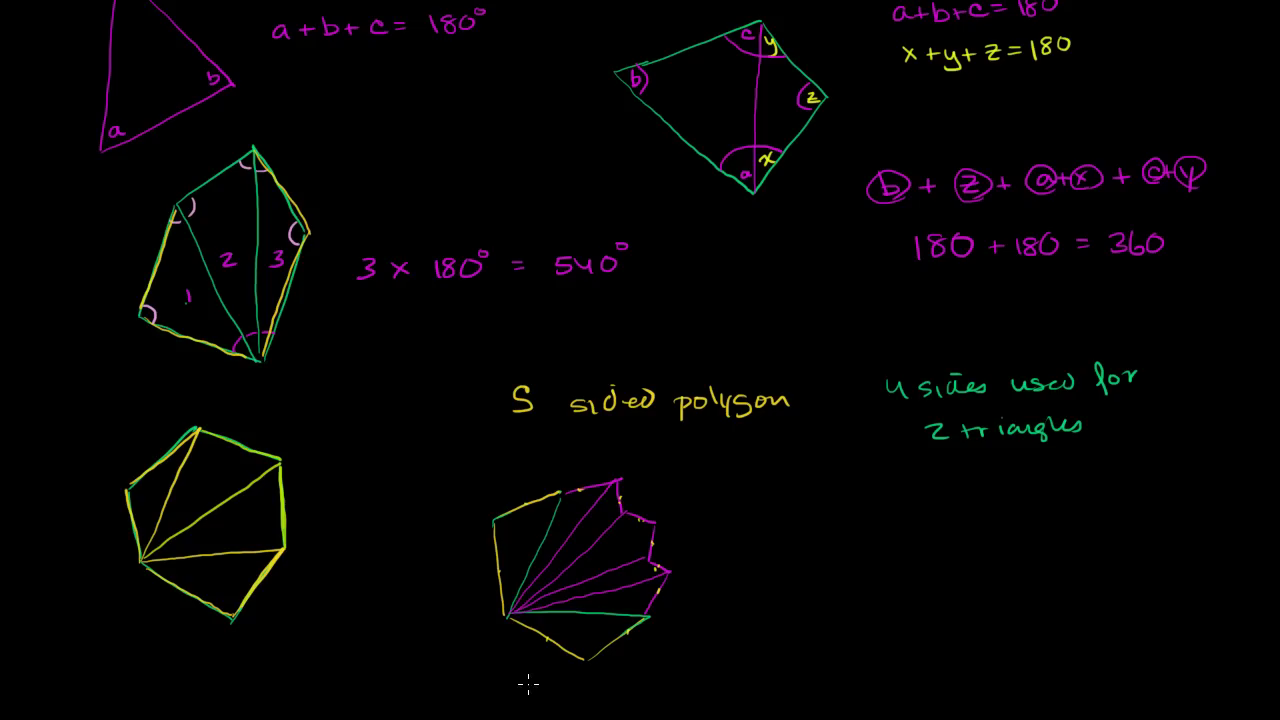 a+b+c = 180°
a+b+c = 180
x+y+z = 180
b
a
c y
b
z
x
a
b + z + a+x + c+y
180 + 180 = 360
1 2 3
3 x 180° = 540°
S sided polygon
4 sides used for
2 triangles